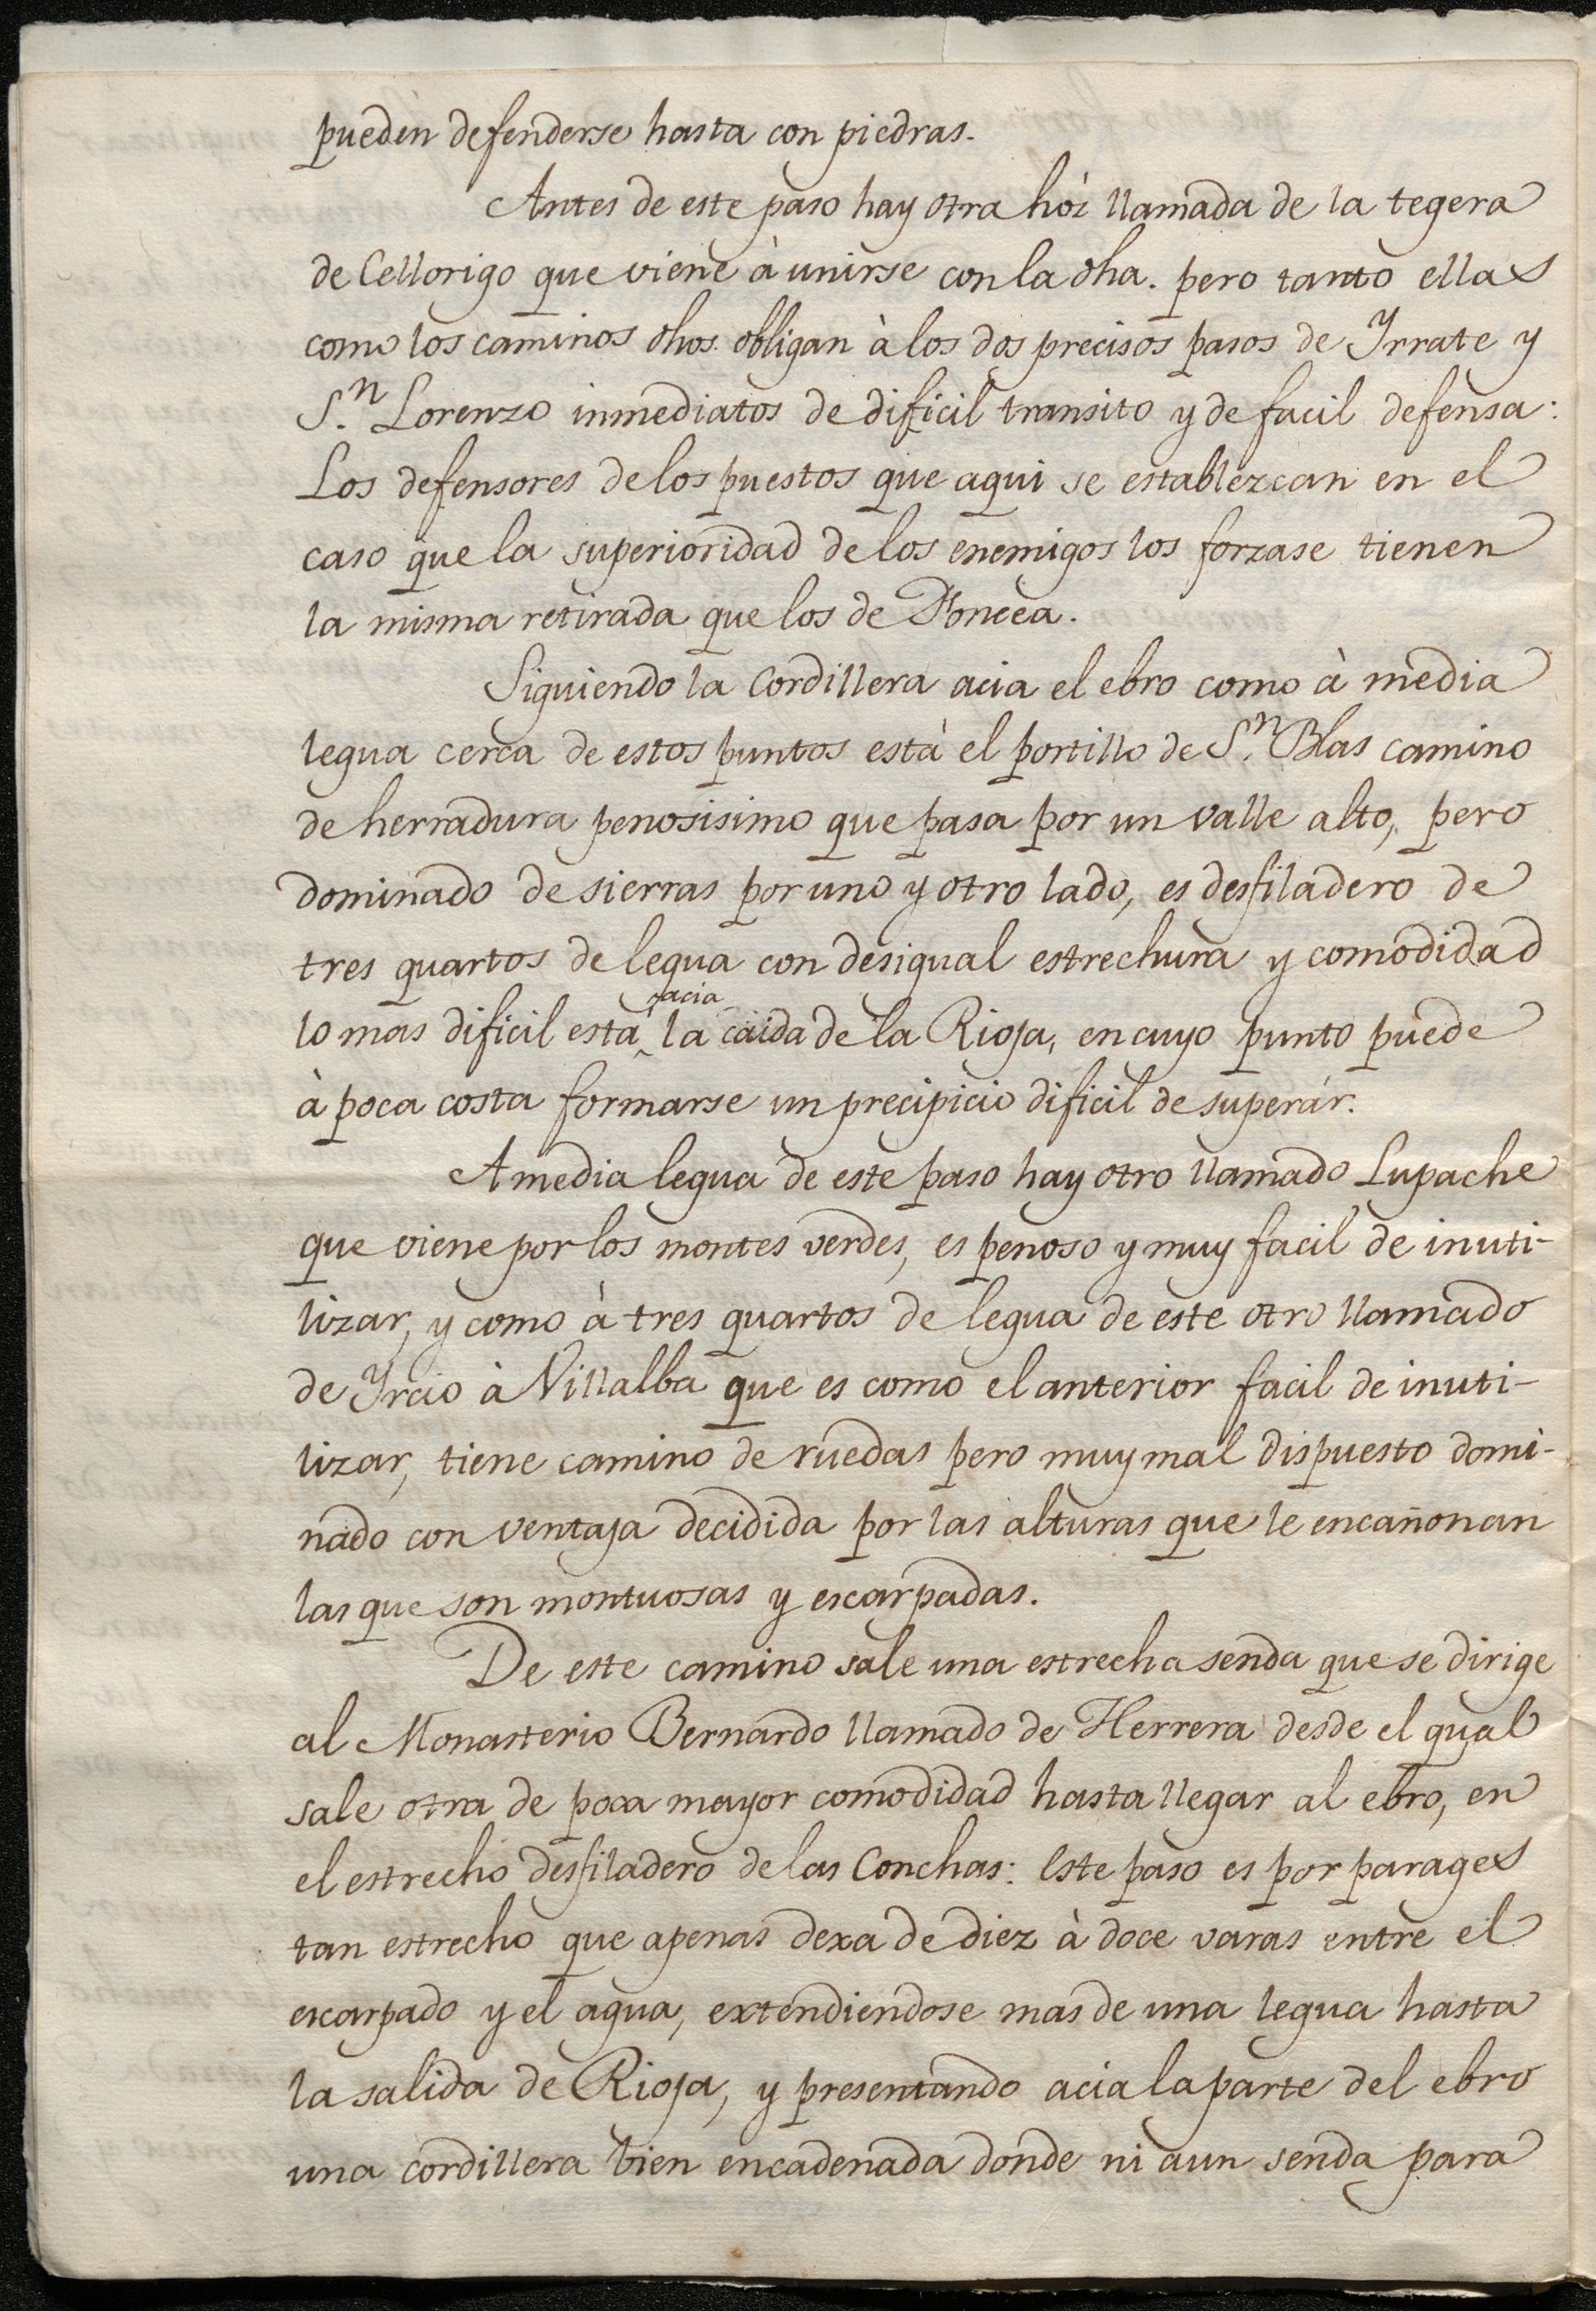 pueden defenderse hasta con piedras.
Antes de este paso hay otra hòz llamada de la tegera
de Cellorigo que viene à unirse con la dha. pero tanto ellas
como los caminos dhos. obligan à los dos precisos pasos de Yrrate y
S.n Lorenzo inmediatos de dificil transito y de facil defensa:
Los defensores de los puestos que aqui se establezcan en el
caso que la superioridad de los enemigos los forzase tienen
la misma retirada que los de Foncea.
Siguiendo la Cordillera acia el ebro como à media
legua cerca de estos puntos està el portillo de S.n Blas camino
de herradura penosisimo que pasa por un valle alto, pero
dominado de sierras por uno y otro lado, es desfiladero de
tres quartos de legua con desigual estrechura y comodidad
lo mas dificil està acia la caida de la Rioja, en cuyo punto puede
à poca costa formarse un precipicio dificil de superár.
A media legua de este paso hay otro llamado Lupache
que viene por los montes verdes, es penoso y muy facil de inuti-
lizar, y como à tres quartos de legua de este otro llamado
de Yrcio à Villalba que es como el anterior facil de inuti-
lizar, tiene camino de ruedas pero muy mal dispuesto domi-
nado con ventaja decidida por las alturas que le encañonan
las que son montuosas y escarpadas.
De este camino sale una estrecha senda que se dirige
al Monasterio Bernardo llamado de Herrera desde el qual
sale otra de poca mayor comodidad hasta llegar al ebro, en
el estrecho desfiladero de las Conchas: Este paso es por parages
tan estrecho que apenas dexa de diez à doce varas entre el
escarpado y el agua, extendiendose mas de una legua hasta
la salida de Rioja, y presentando acia la parte del ebro
una cordillera bien encadenada donde ni aun senda para